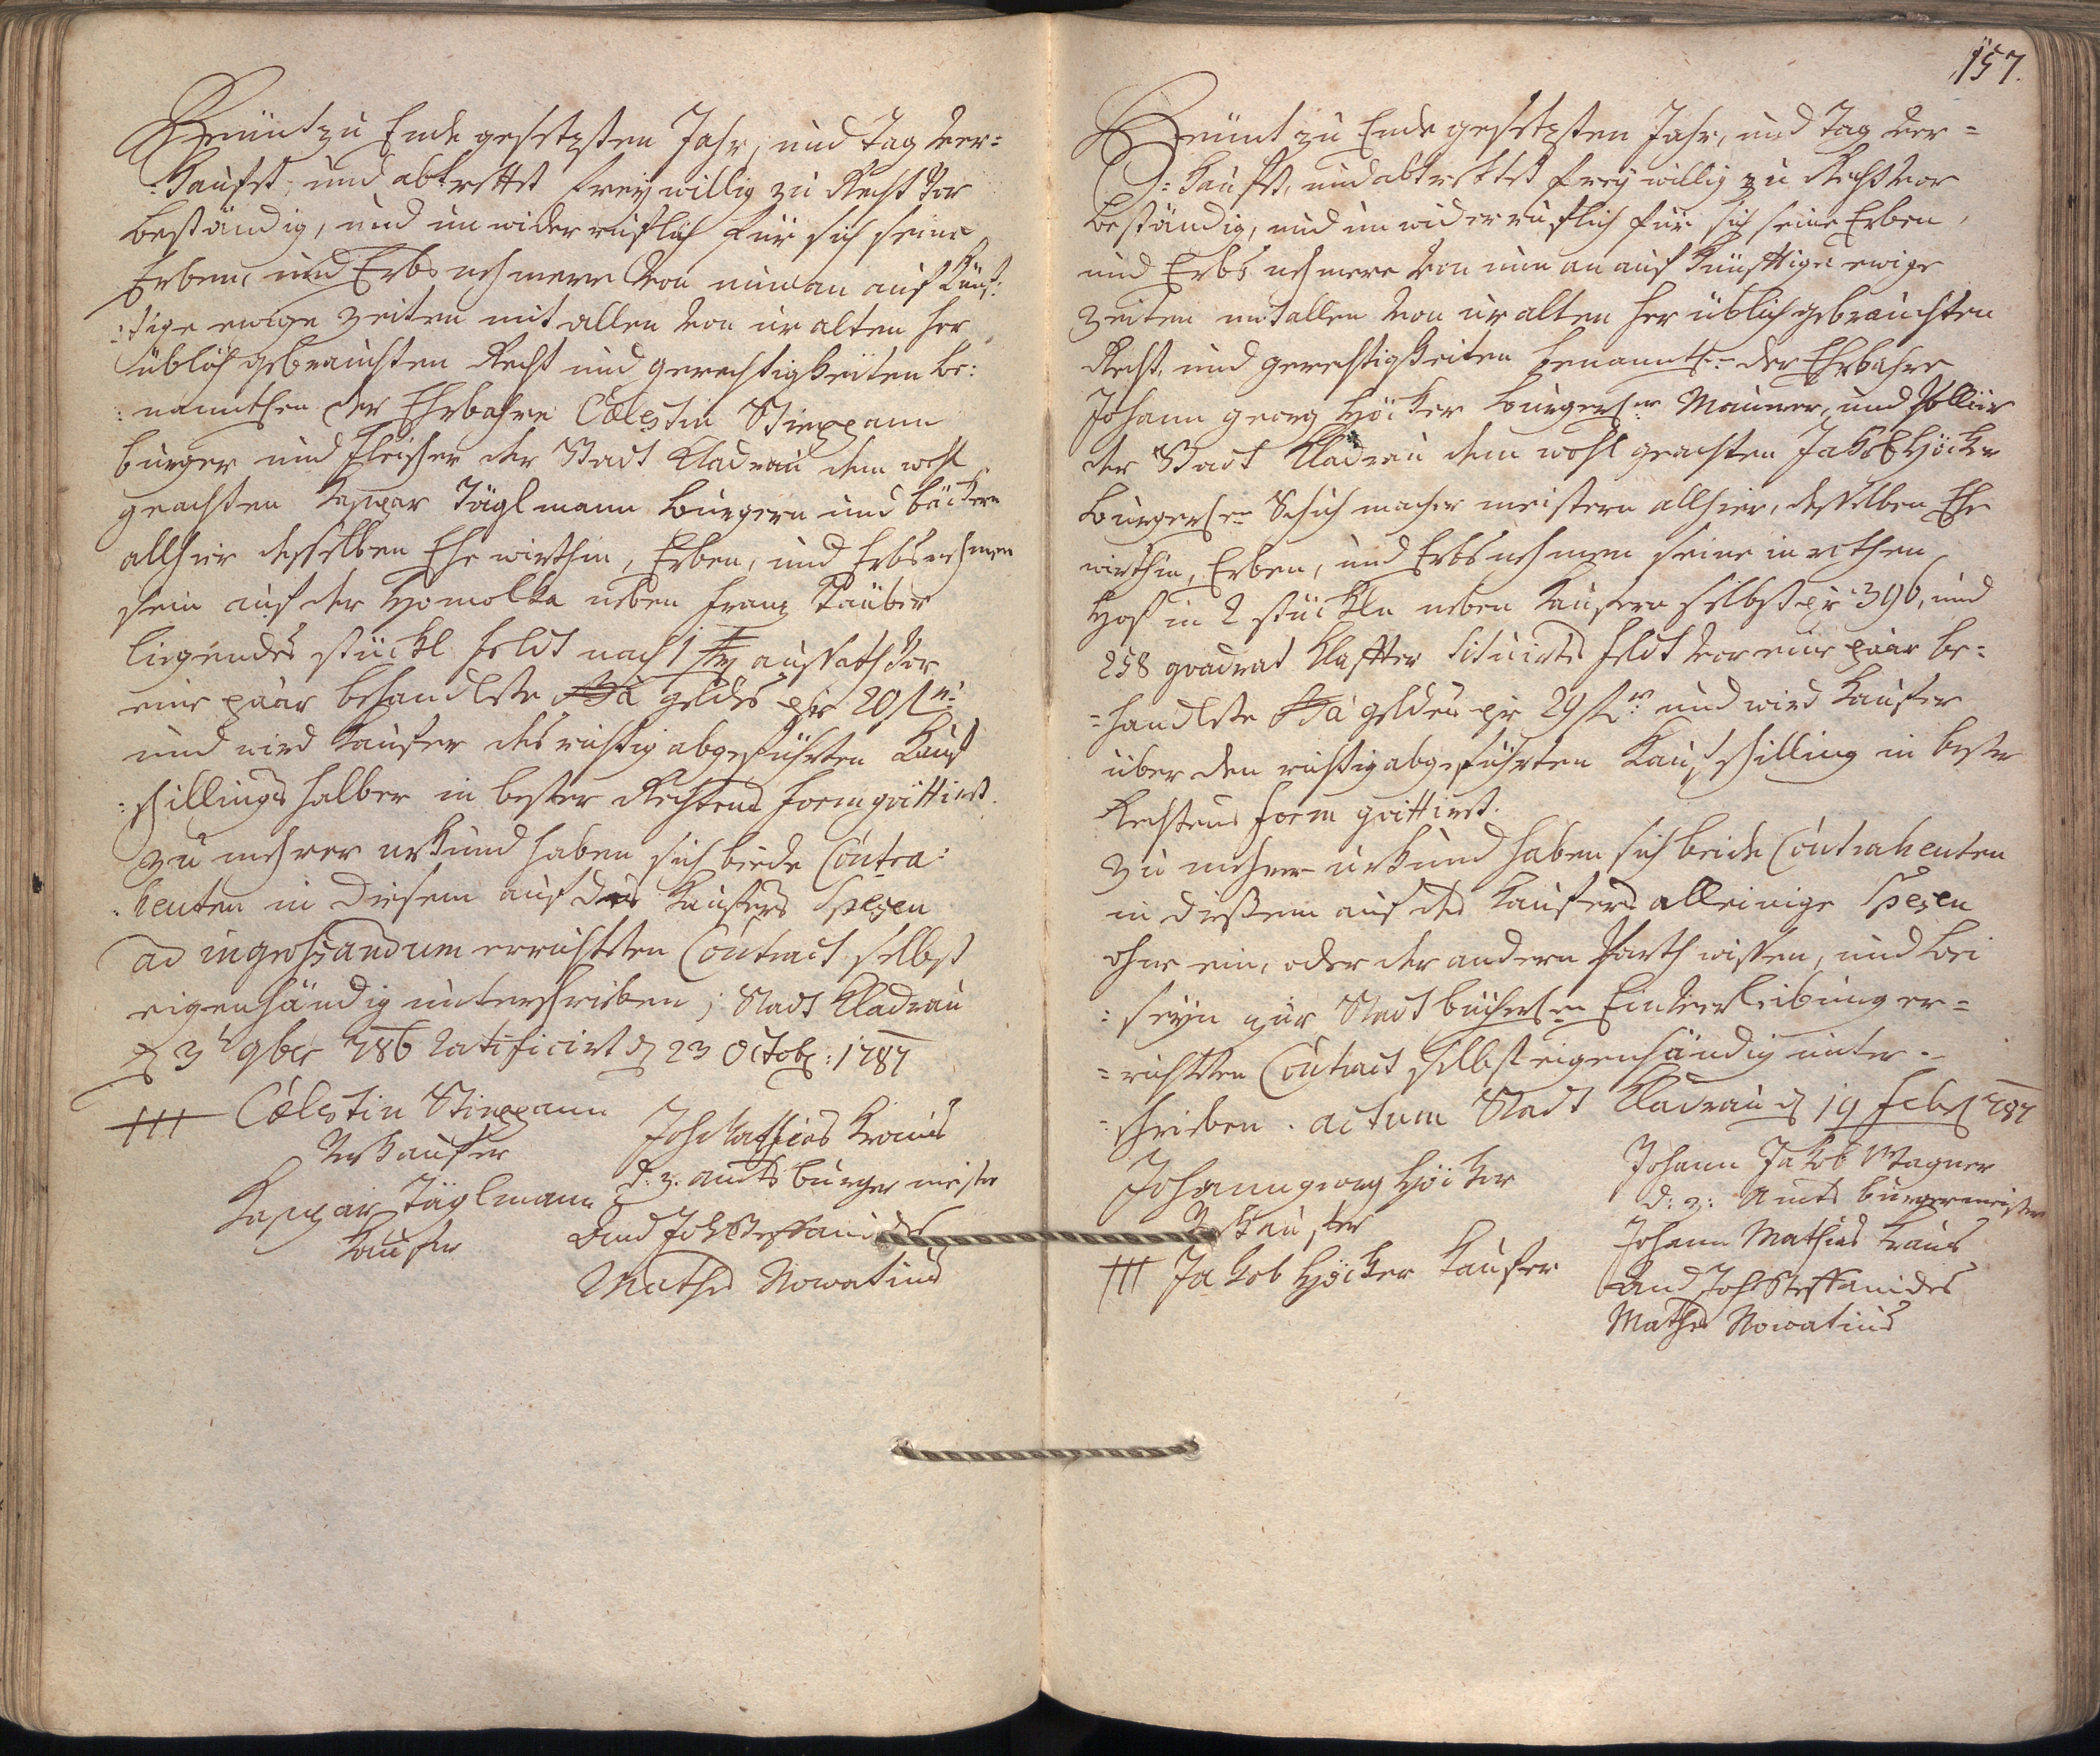 Heünt zu Ende gesetzten Jahr, und Tag ver=
:kauft, und abtrettet freywillig zu Recht vor
beständig, und unwiderruflich für sich seine
Erben, und Erbsnehmere von nun an auf künf:
:tige ewige Zeiten mit allen von uralten her
üblich gebrauchten Recht und gerechtigkeiten be:
:nanntlichen der Ehrbahre Cœlestin Stingann
burger und Fleischer der Stadt Kladrau dem wohl
geachten Caspar Täglmann burgern und bäckern
allhier desselben Ehewirthin, Erben, und Erbsnehmen
sein auf der Homolka neben Franz Täuber
liegendes stückl feldt nach 1 aussath vor
eine paar behandlete Sa geldes pr 20 f
und wird Kaufer des richtig abgeführten Kauf
:schillings halber in bester Rechtens form quittiret.
Zu mehrer urkund haben sich beede Contra:
:henten in diesem auf des Kaufers Spesen
ad ingrossandum errichteten Contract selbst
eigenhändig unterschrieben; Stadt Kladrau
d 3t 9ber 786 ratificirt d 23 Octob: 1787
+++ Cœlestin Stingann
Verkaufer
Caspar Täglmann
Kaufer
Joh Mathias Kraus
d: z. amts burgermeister
And Joh Steffanides
Mathes Nowatius
157.
Heünt zu Ende gesetzten Jahr, und Tag ver=
:kauft, und abtrettet freywillig zu Recht vor
beständig, und unwiderruflich für sich seine Erben,
und Erbsnehmere von nun an auf künftige ewige
Zeiten mit allen von uralten her üblich gebrauchten
Recht, und gerechtigkeiten benanntl: der Ehrbahre
Johann georg Höcker burgerlr Maurer, und Pollier
der Stadt Kladrau dem wohl geachten Jakob Höcker
burgerlen Schuchmacher meistern allhier, desselben Ehe
wirthin, Erben, und Erbsnehmen seine in rothen
Hof in 2 stückln neben Kaufern selbst pr 396, und
258 quadrat Klaffter situirte feldt vor eine paar be=
=handlete Sa geldes pr 29 f und wird Kaufer
über den richtig abgeführten Kaufschilling in bester
Rechtens form quittiret.
Zu mehrer urkund haben sich beide Contrahenten
in dießem auf des Kaufers alleinige Spesen
ohne ein, oder der andern Parth wissen, und bei
:seyn zur Stadt bücherlen Einverleibung er=
=richteten Contract selbst eigenhändig unter=
=schrieben. actum Stadt Kladrau d 19 Feb 787
Johann georg Höcker
Verkaufer
+++ Jakob Höcker Kaufer
Johann Jakob Wagner
d: z: Amts burgermeister
Johann Mathias Kraus
And Joh Steffanides
Mathes Nowatius